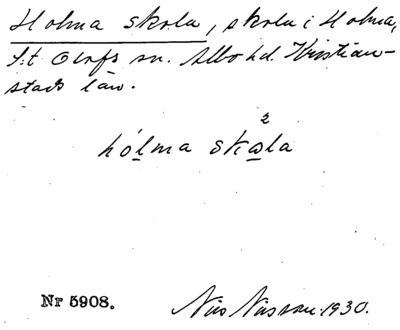 Holma skola, skola i Holma,
S:t Olofs sn. Albo hd. Kristian-
stads län.
hólma skola
2
Nr 5908.
Nils Nilsson. 1930.